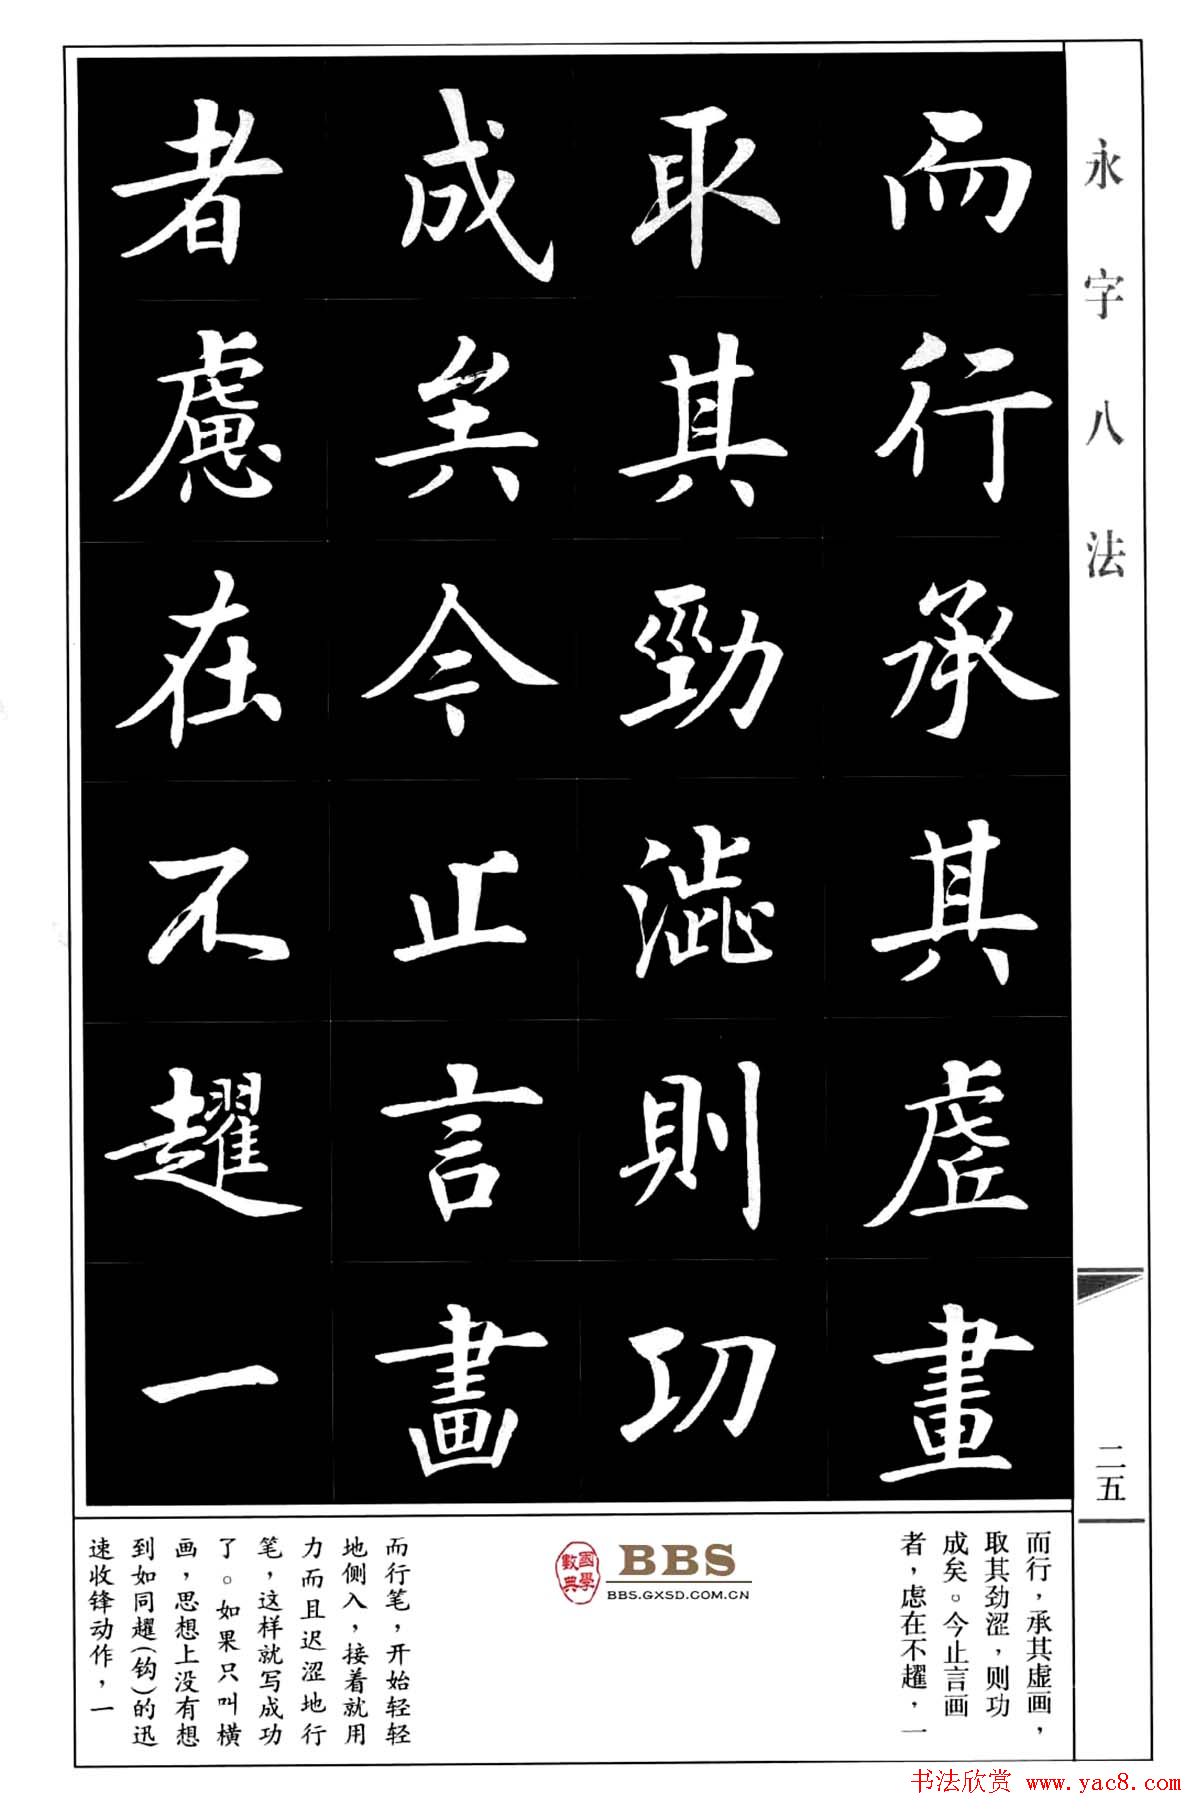 永字八法
而行承其虛畫
取其勁澁則功
成矣今止言畫
者慮在不趯一
二五
而行，承其虚画，
取其劲涩，则功
成矣。今止言画
者，虑在不趯，一
國學
數典
BBS
BBS.GXSD.COM.CN
而行笔，开始轻轻
地侧入，接着就用
力而且迟涩地行
笔，这样就写成功
了。如果只叫横
画，思想上没有想
到如同趯（钩）的迅
速收锋动作，一
书法欣赏 www.yac8.com